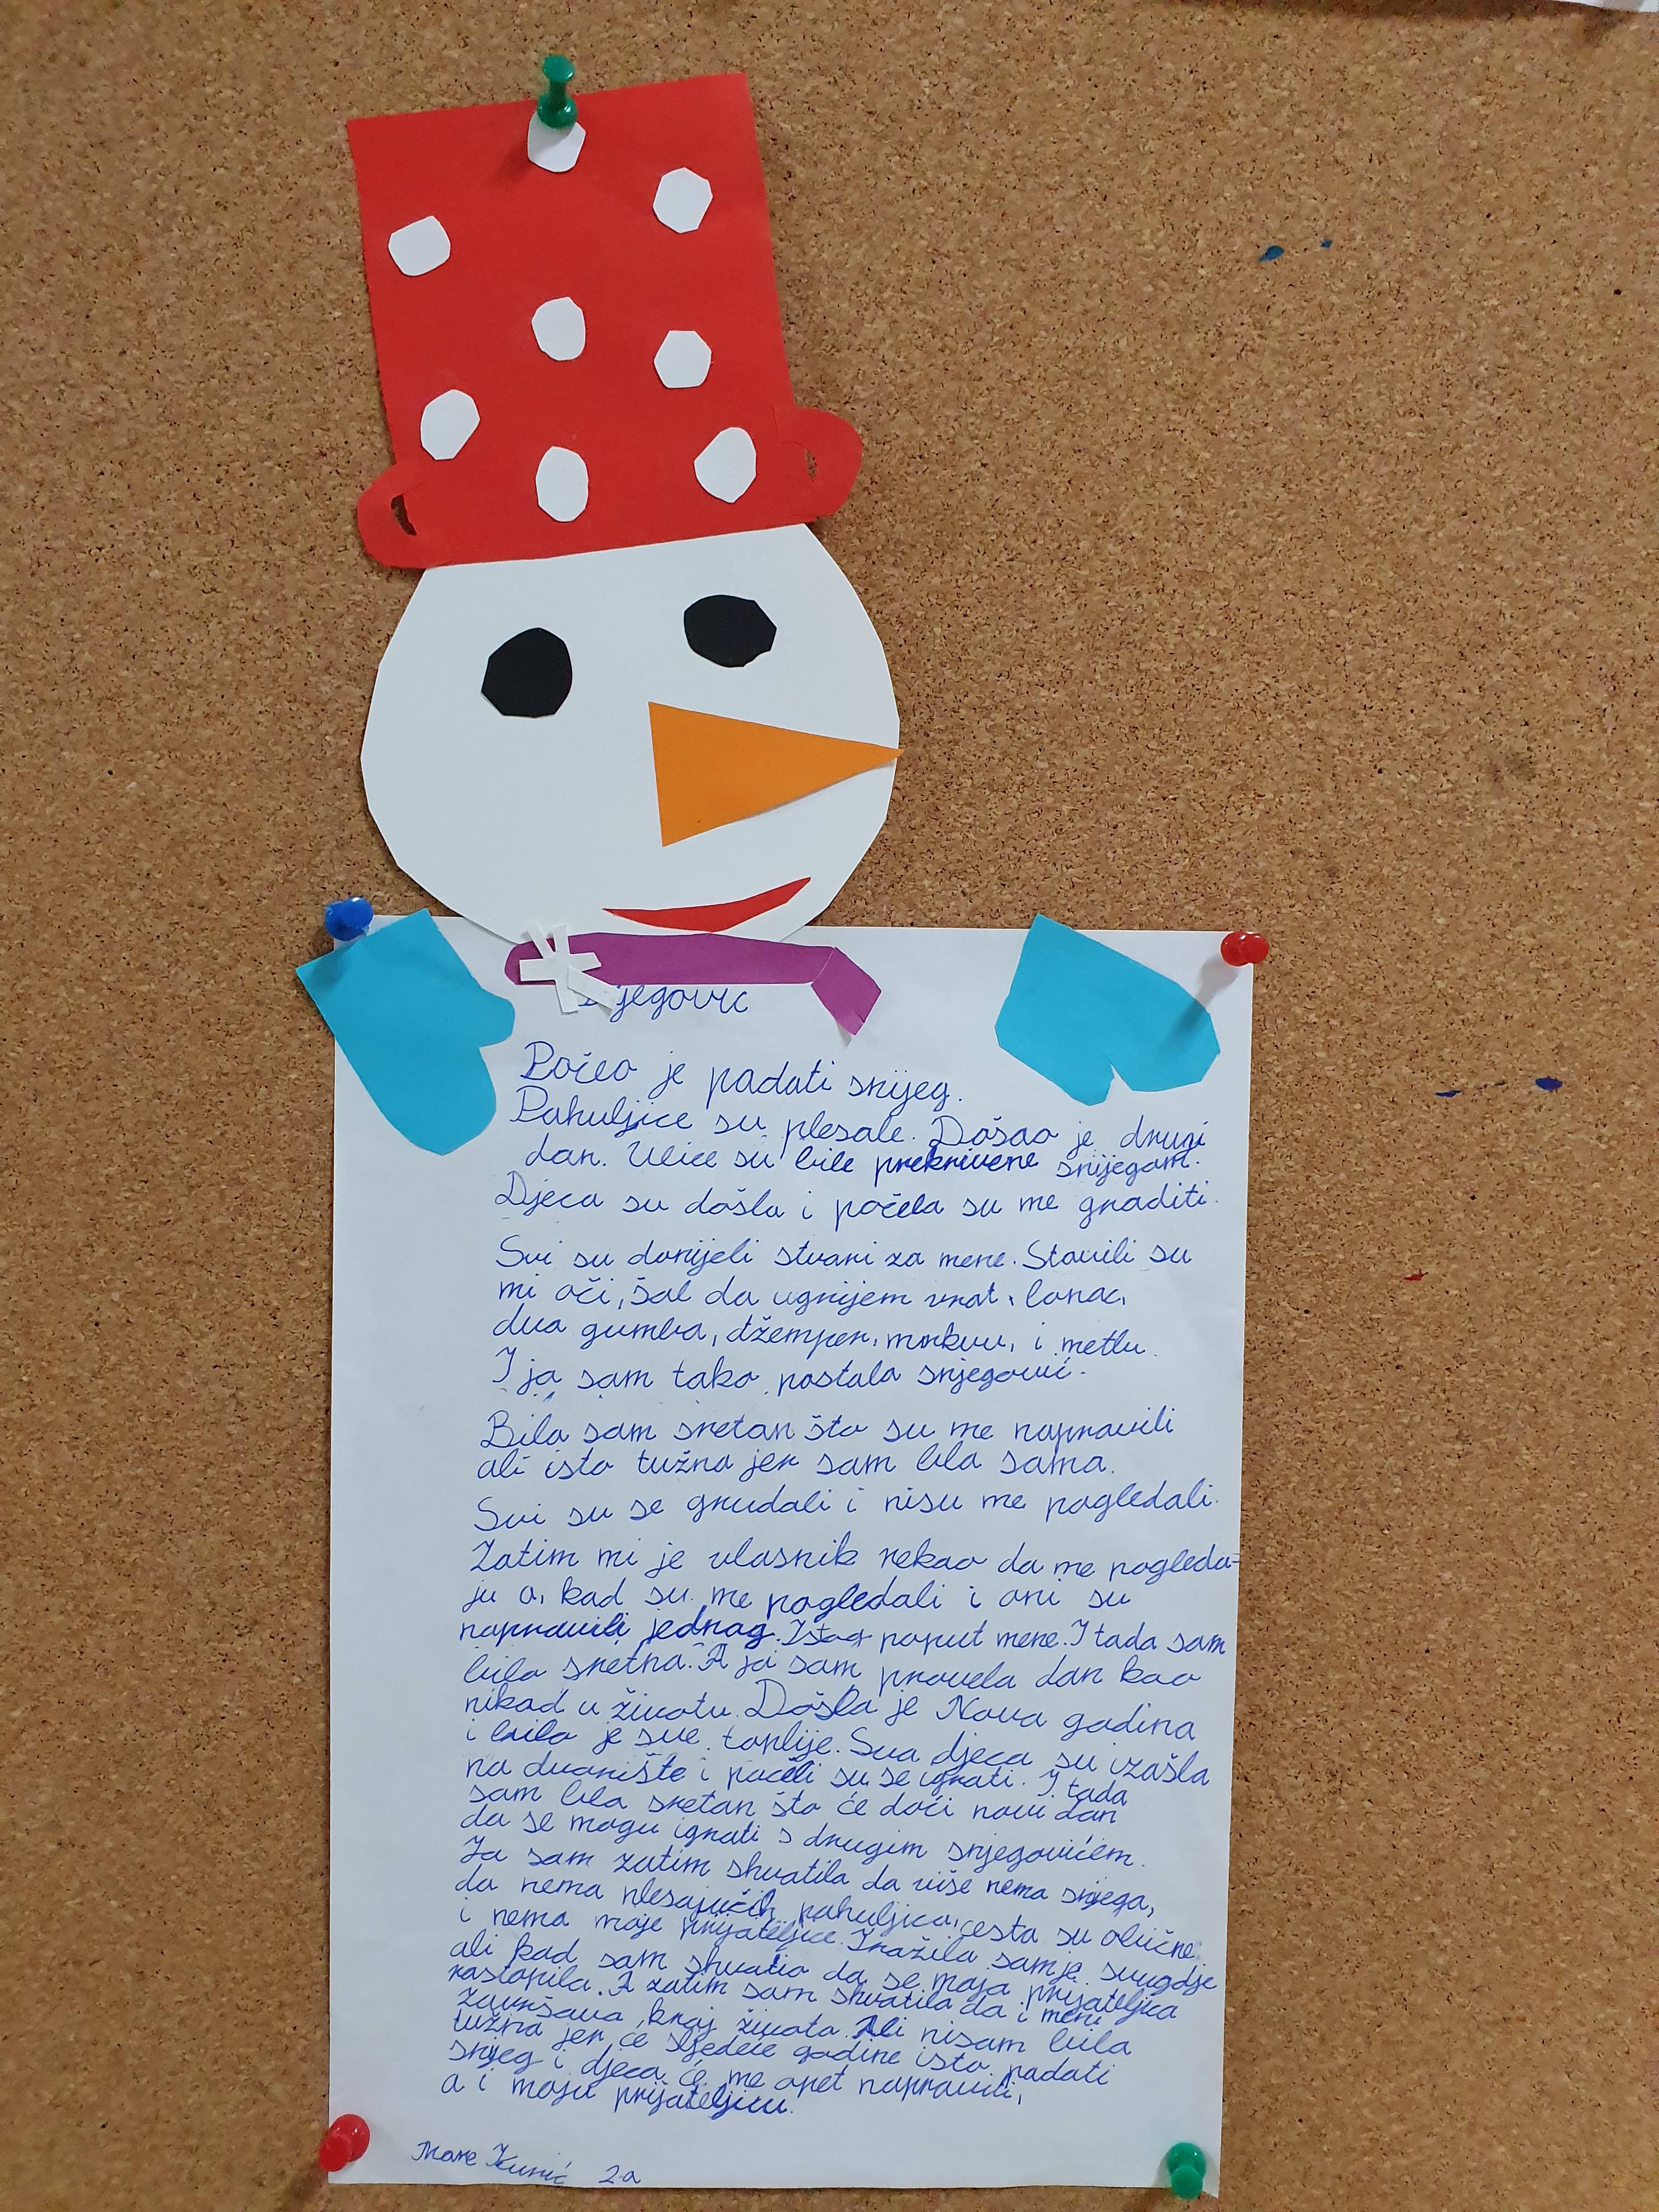 Snjegović
Počeo je padati snijeg.
Pahuljice su plesale. Došao je drugi
dan. Ulice su bile prekrivene snijegom.
Djeca su došla i počela su me graditi.
Svi su donijeli stvari za mene. Stavili su
mi oči, šal da ugrijem vrat, lonac,
dva gumba, džemper, mrkvu, i metlu.
I ja sam tako postala snjegović.
Bila sam sretan što su me napravili
ali isto tužna jer sam bila sama.
Svi su se grudali i nisu me pogledali.
Zatim mi je vlasnik rekao da me pogleda-
ju a, kad su me pogledali i oni su
napravili jednog. Istog poput mene. I tada sam
bila sretna. A ja sam provela dan kao
nikad u životu. Došla je Nova godina
i bilo je sve toplije. Sva djeca su izašla
na dvorište i počeli su se igrati. I tada
sam bila sretan što će doći novi dan
da se mogu igrati s drugim snjegovićem.
Ja sam zatim shvatila da više nema snijega,
da nema plesajućih pahuljica, cesta su obične
i nema moje prijateljice. Tražila sam je svugdje
ali kad sam shvatio da se moja prijateljica
rastopila. A zatim sam shvatila da i meni
završava kraj života. Ali nisam bila
tužna jer će sljedeće godine isto padati
snijeg i djeca će me opet napraviti,
a i moju prijateljicu.
Mare 2.a